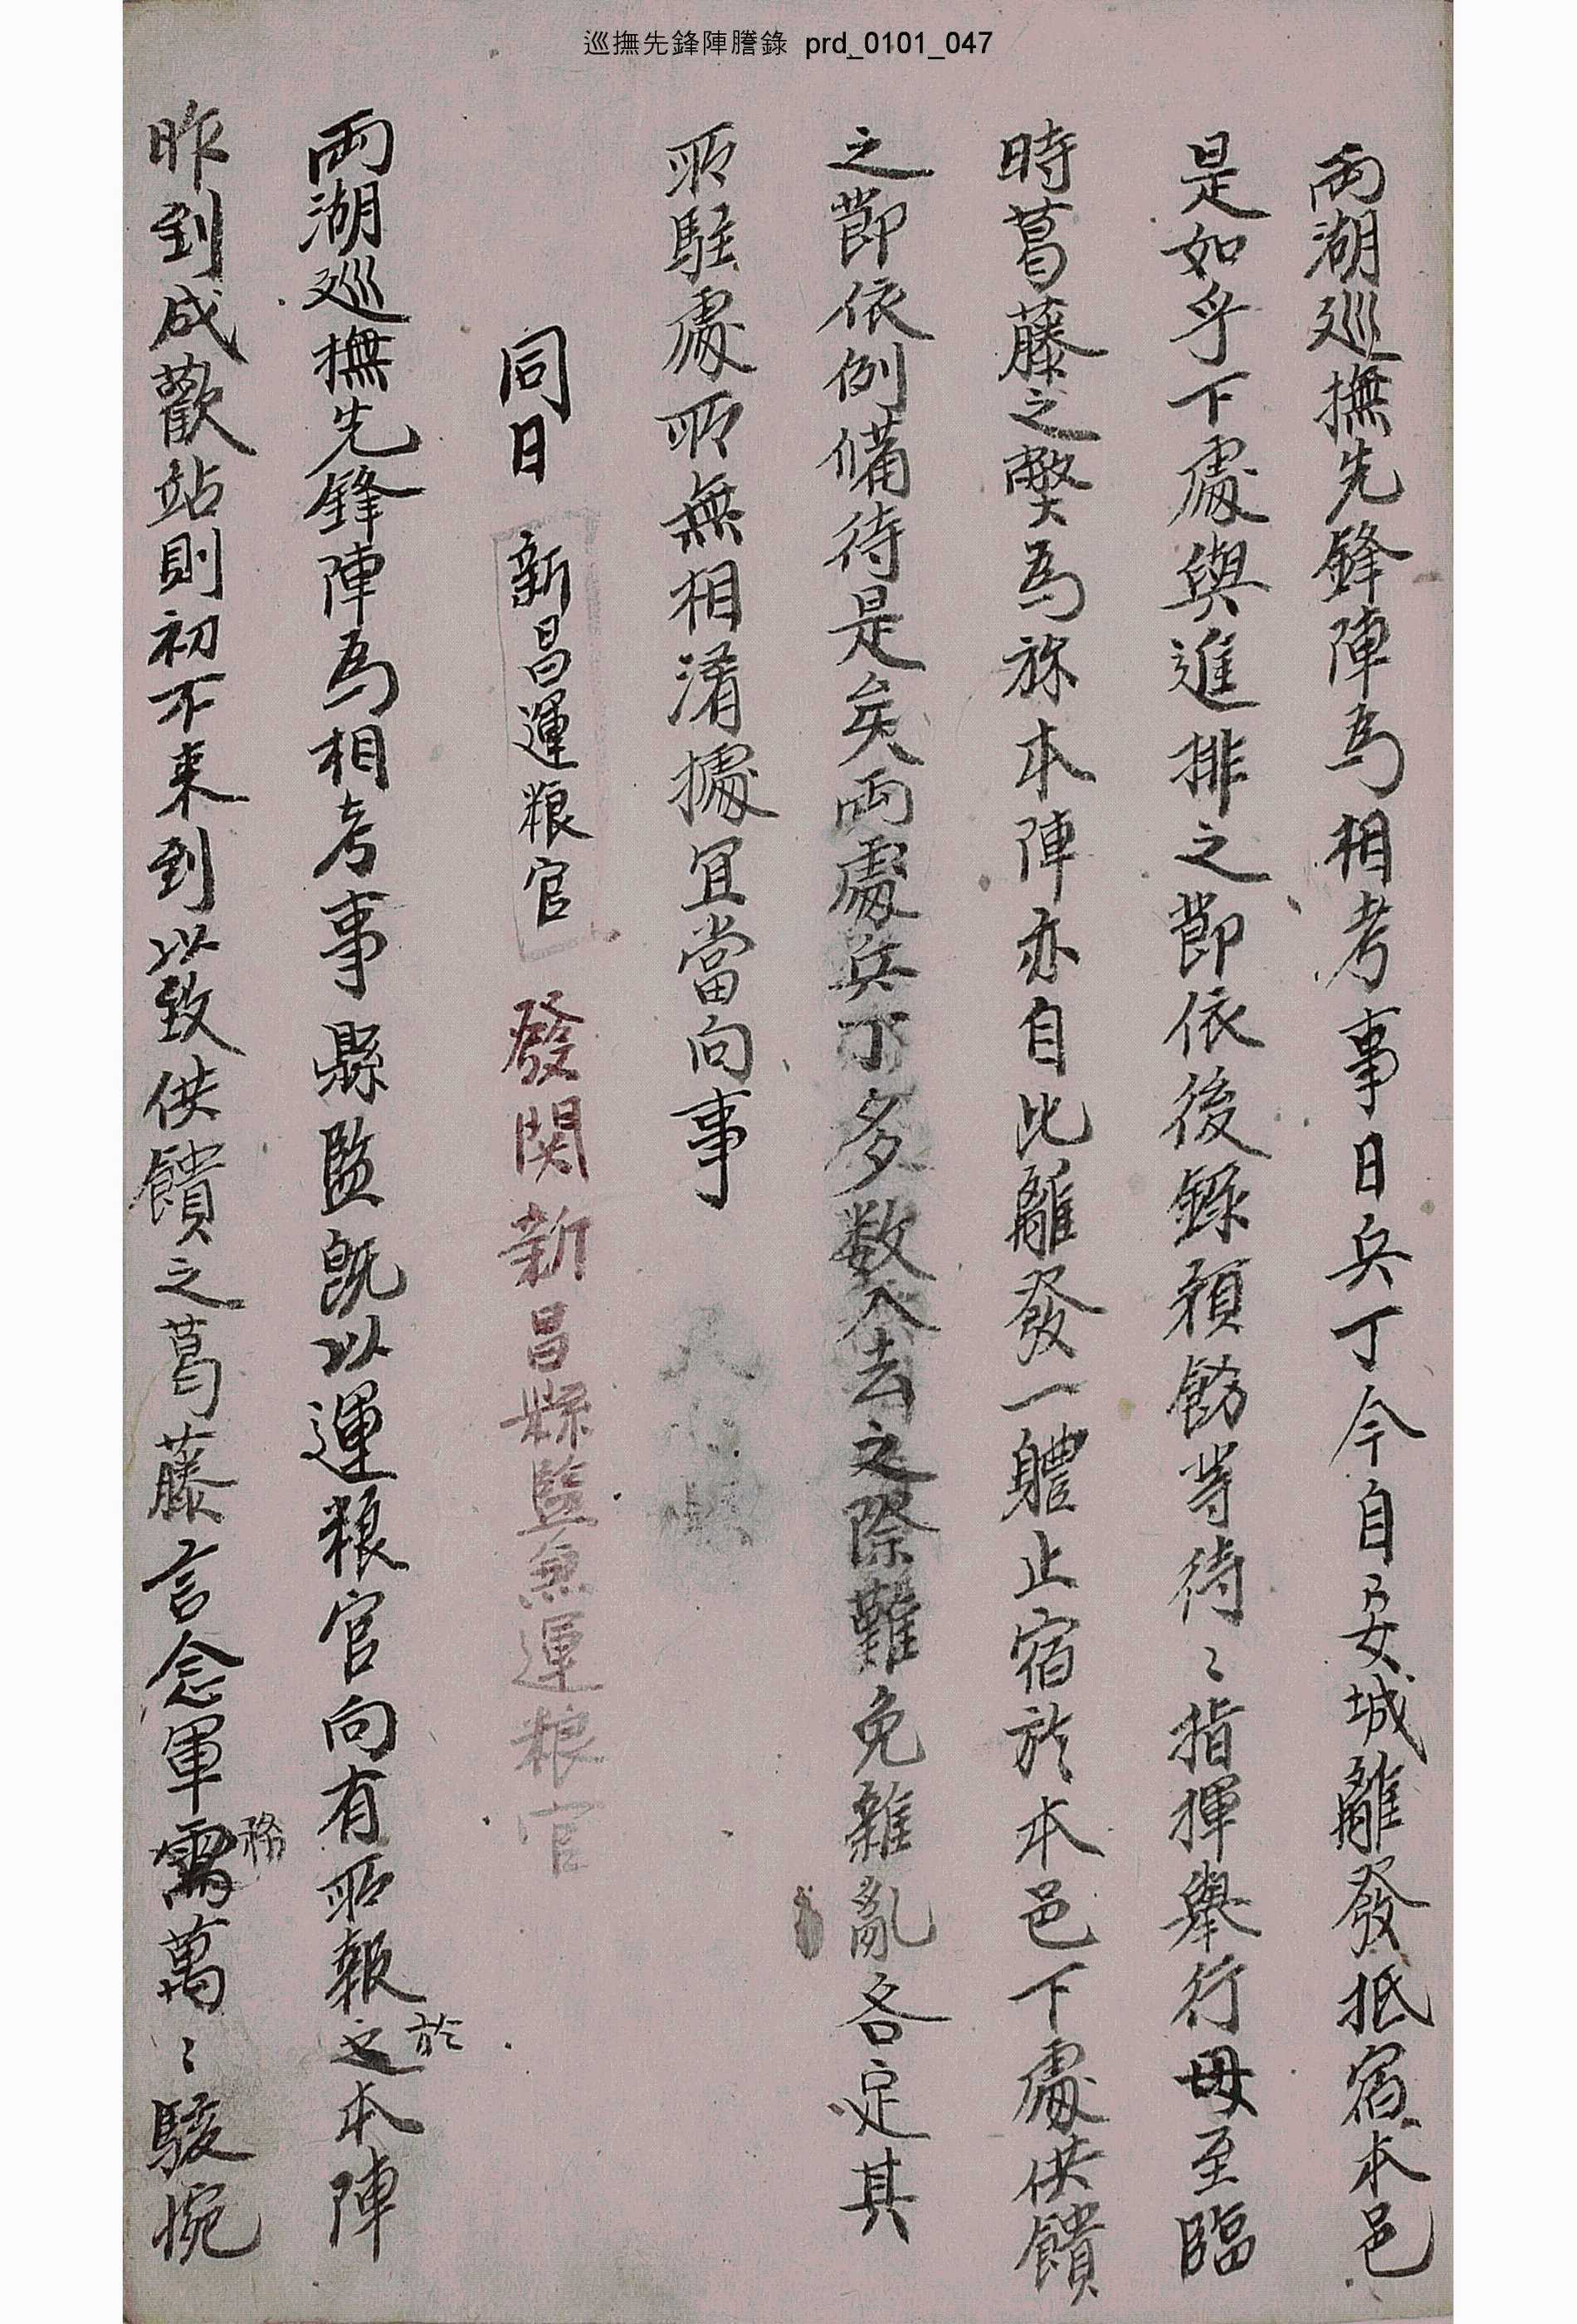 巡撫先鋒陣謄錄 prd_0101_047
兩湖巡撫先鋒陣爲相考事日兵丁今自安城離發抵宿本邑
是如乎下處與進排之節依後錄預飭等待〻指揮擧行毋至臨
時葛藤之弊爲旀本陣亦自比離發一軆止宿於本邑下處供饋
之節依例備待是矣兩處兵丁多数入去之際難免雜亂各定其
所駐處所無相淆據宜當向事
同日 新昌運粮官 發関新昌縣監兼運粮官
兩湖巡撫先鋒陣爲相考事縣監旣以運粮官向有所報之於本陣
昨到成歡站則初不来到以致供饋之葛藤言念軍需務萬〻駭惋